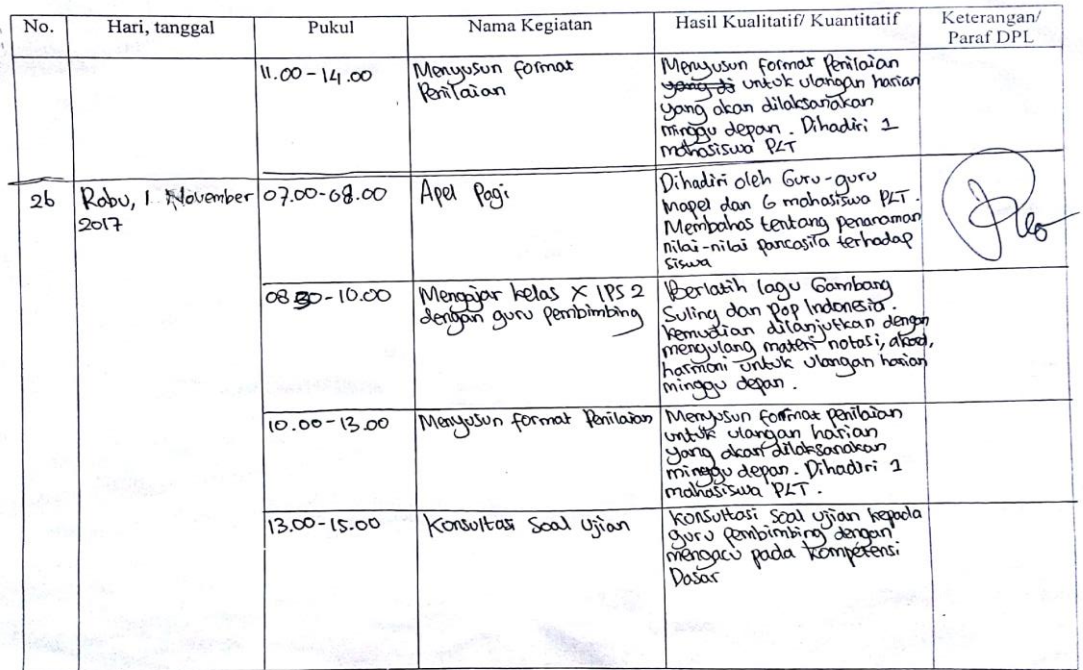 No.
Hari, tanggal
Pukul
Nama Kegiatan
Hasil Kualitatif/ Kuantitatif
Keterangan/
Paraf DPL
11.00 - 14.00
Menyusun format
Penilaian
Menyusun format Penilaian
yang di untuk ulangan harian
yang akan dilaksanakan
minggu depan. Dihadiri 1
mahasiswa PLT
26
Rabu, 1 November
2017
07.00-08.00
Apel Pagi
Dihadiri oleh Guru-guru
Mapel dan 6 mahasiswa PLT.
Membahas tentang penanaman
nilai-nilai pancasila terhadap
siswa
08 30-10.00
Mengajar kelas X IPS 2
dengan guru pembimbing
Berlatih lagu Gambang
Suling dan Pop Indonesia.
Kemudian dilanjutkan dengan
mengulang materi notasi, akord,
harmoni untuk ulangan harian
minggu depan.
10.00-13.00
Menyusun format Penilaian
Menyusun format penilaian
untuk ulangan harian
yang akan dilaksanakan
minggu depan. Dihadiri 1
mahasiswa PLT.
13.00-15.00
Konsultasi Soal Ujian
Konsultasi Soal Ujian kepada
guru pembimbing dengan
mengacu pada Kompetensi
Dasar